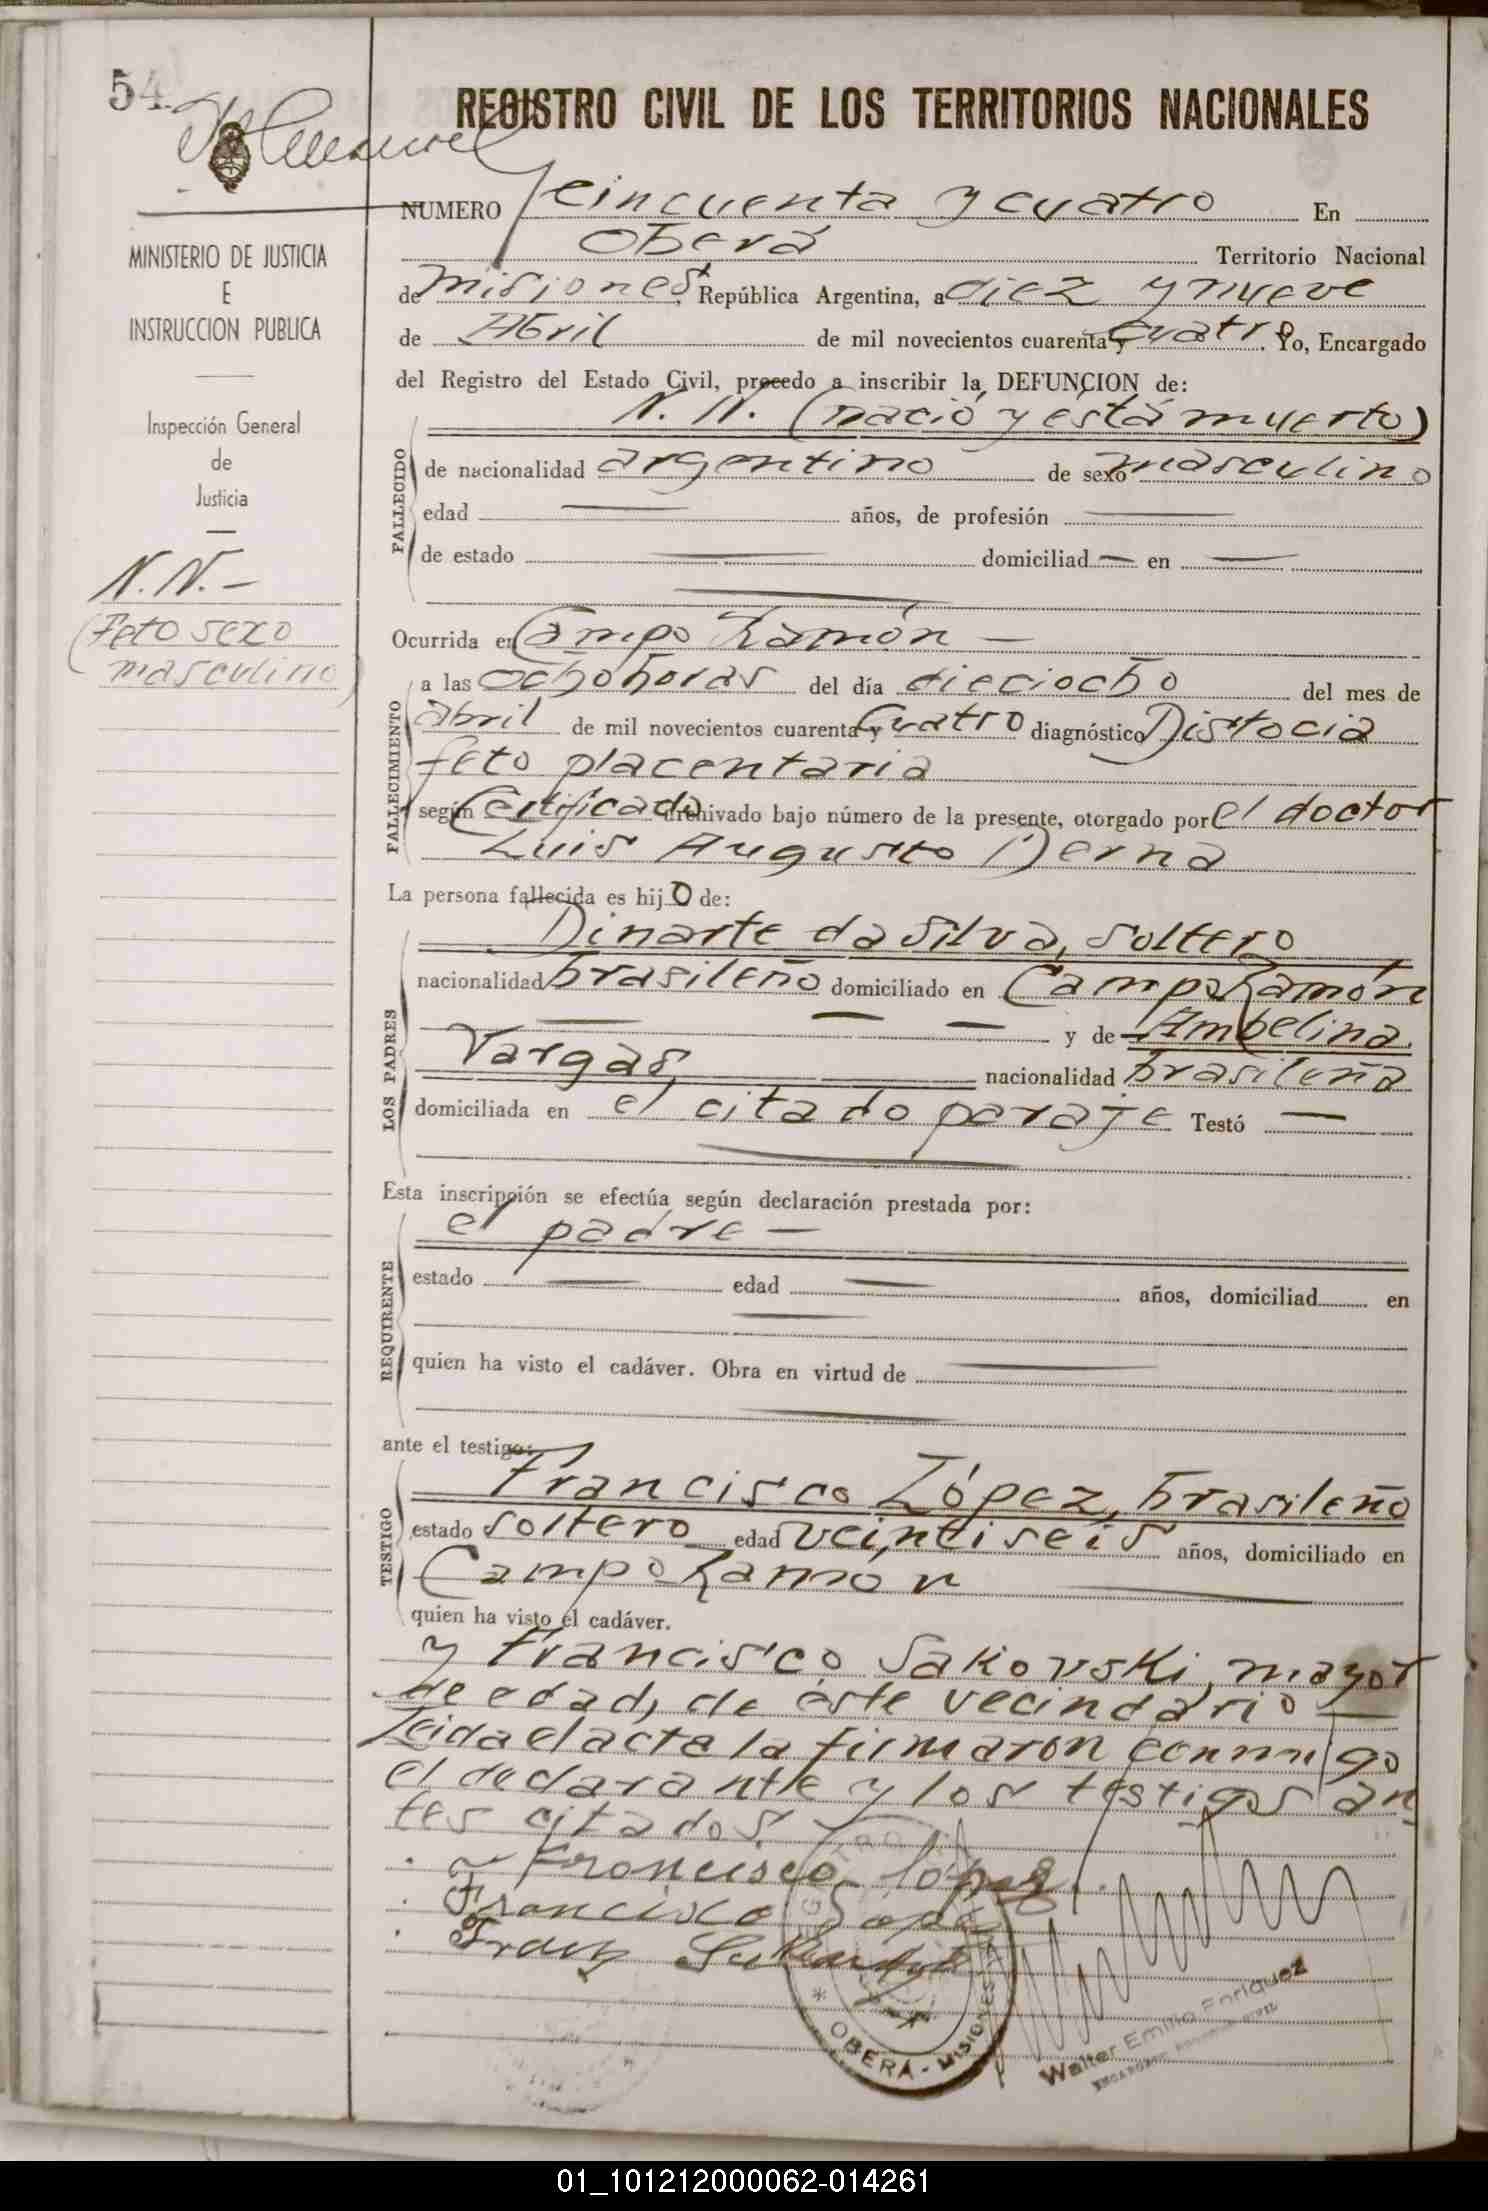 54
REGISTRO CIVIL DE LOS TERRITORIOS NACIONALES
NUMERO cincuenta y cuatro En
Oberá Territorio Nacional
de Misiones, República Argentina, a diez y nueve
de Abril de mil novecientos cuarenta y cuatro. Yo, Encargado
del Registro del Estado Civil, procedo a inscribir la DEFUNCION de:
N. N. (nació y está muerto)
FALLECIDO
de nacionalidad argentino de sexo masculino
edad — años, de profesión —
de estado — domiciliad — en —
MINISTERIO DE JUSTICIA
E
INSTRUCCION PUBLICA
Inspección General
de
Justicia
N. N. -
(Feto sexo
masculino)
Ocurrida en Campo Ramón —
FALLECIMIENTO
a las ocho horas del día dieciocho del mes de
abril de mil novecientos cuarenta y cuatro diagnóstico Distocia
feto placentaria
según Certificado archivado bajo número de la presente, otorgado por el doctor
Luis Augusto Derna
La persona fallecida es hijo de:
LOS PADRES
Dinarte da Silva, soltero
nacionalidad brasileño domiciliado en Campo Ramón
— — — y de Ambelina
Vargas, nacionalidad brasileña
domiciliada en el citado paraje Testó —
Esta inscripción se efectúa según declaración prestada por:
REQUIRENTE
el padre —
estado — edad — años, domiciliad en
quien ha visto el cadáver. Obra en virtud de —
ante el testigo:
TESTIGO
Francisco López, brasileño
estado soltero edad veintiseis años, domiciliado en
Campo Ramon
quien ha visto el cadáver.
y Francisco Sakovski, mayor
de edad, de este vecindario —
Leida el acta la firmaron conmigo
el declarante y los testigos an
tes citados.
Francisco López
Francisco Lopez
Franz
OBERÁ - MISIONES
Walter Emilio Enriquez
ENCARGADO REGISTRO CIVIL
01_101212000062-014261